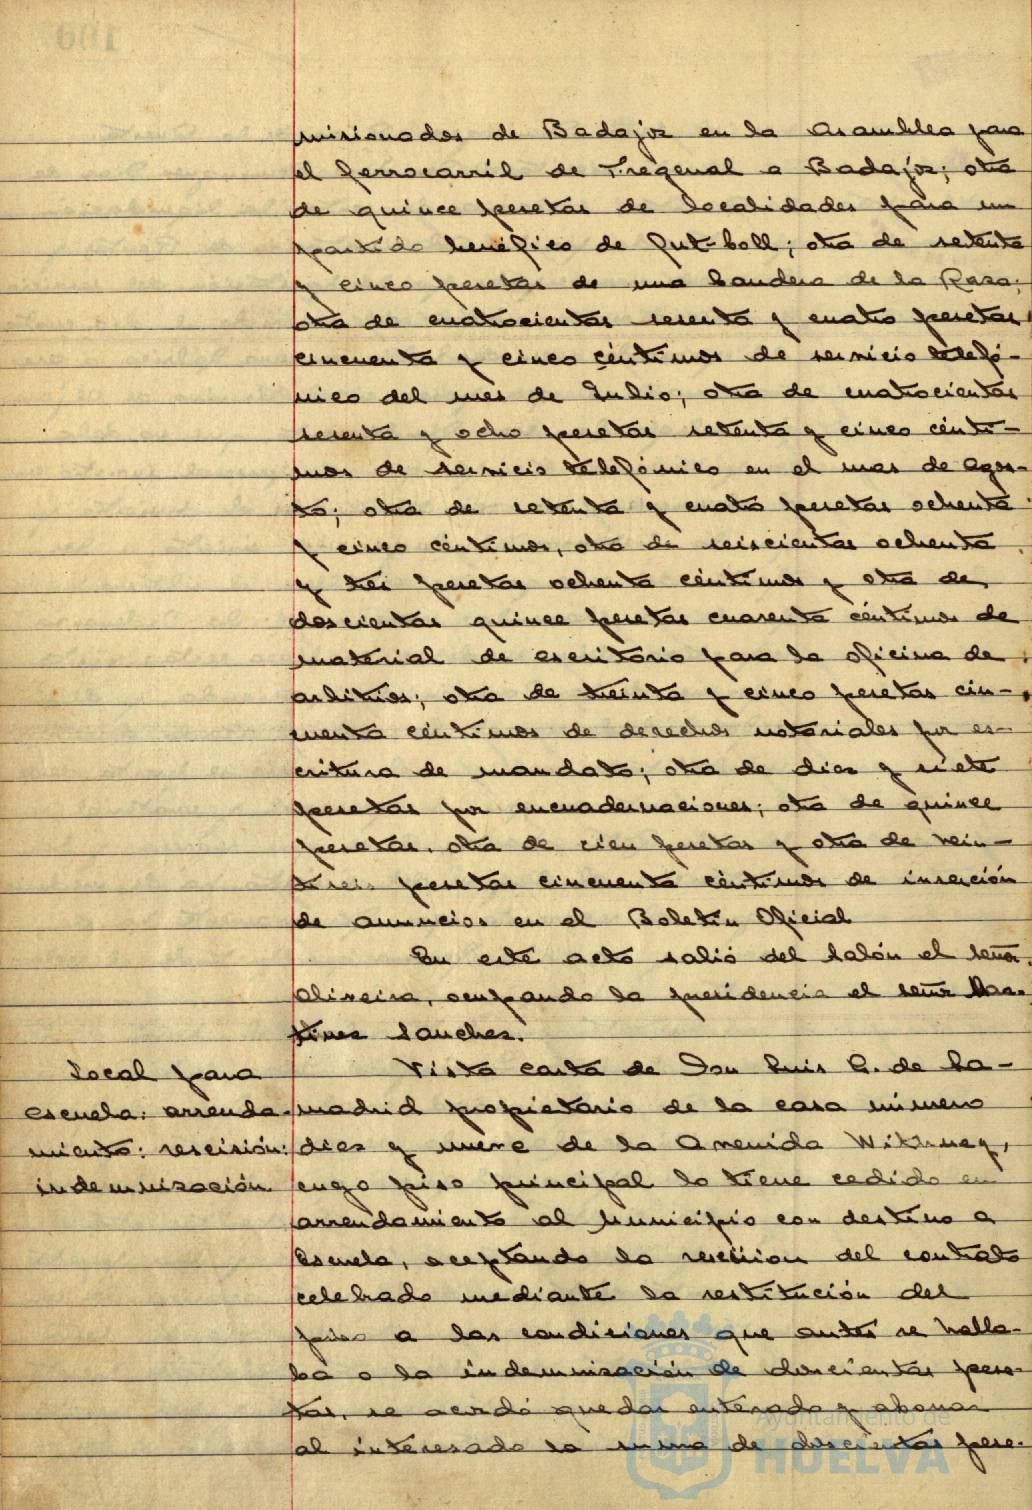 misionados de Badajoz en la Asamblea para
el ferrocarril de Fregenal a Badajoz; otra
de quince pesetas de localidades para un
partido benéfico de fut-boll; otra de setenta
y cinco pesetas de una bandera de la Raza;
otra de cuatrocientas sesenta y cuatro pesetas
cincuenta y cinco céntimos de servicio telefó-
nico del mes de Julio; otra de cuatrocientas
sesenta y ocho pesetas setenta y cinco cénti-
mos de servicio telefónico en el mes de Agos-
to; otra de setenta y cuatro pesetas ochenta
y cinco céntimos, otra de seiscientas ochenta
y tres pesetas ochenta céntimos y otra de
doscientas quince pesetas cuarenta céntimos de
material de escritorio para la oficina de
arbitrios; otra de treinta y cinco pesetas cin-
cuenta céntimos de derechos notariales por es-
critura de mandato; otra de diez y siete
pesetas por encuadernaciones; otra de quince
pesetas, otra de cien pesetas y otra de vein-
tiseis pesetas cincuenta céntimos de inserción
de anuncios en el Boletín Oficial
En este acto salió del salón el señor
Oliveira, ocupando la presidencia el señor Mar-
tínez Sanchez.
Local para
escuela: arrenda-
miento: rescisión:
indemnización
Vista carta de Don Luis G. de La-
madrid propietario de la casa número
diez y nueve de la Avenida Withney,
cuyo piso principal lo tiene cedido en
arrendamiento al Municipio con destino a
Escuela, aceptando la rescisión del contrato
celebrado mediante la restitución del
piso a las condiciones que antes se halla-
ba o la indemnización de doscientas pese-
tas, se acordó quedar enterado y abonar
al interesado la suma de doscientas pese-
Ayuntamiento de
HUELVA